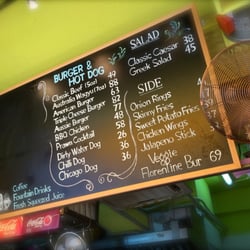 BURGER &
HOT DOG
Classic Beef (5oz) 49
Australia Wagyu (7oz) 88
American Burger 82
Triple Cheese Burger 63
Aussie Burger 77
BBQ Chicken 48
Prawn Cocktail 58
Dirty Water Dog 26
Chili Dog 36
Chicago Dog 36
SALAD
Classic Caesar 38
Greek Salad 45
SIDE
Onion Rings
Skinny Fries
Sweet Potato Fries
Chicken Wings
Jalapeno Stick
Veggie
Florentine Bur 69
Coffee
Fountain Drinks
Fresh Squeezed Juice
Coca-Cola